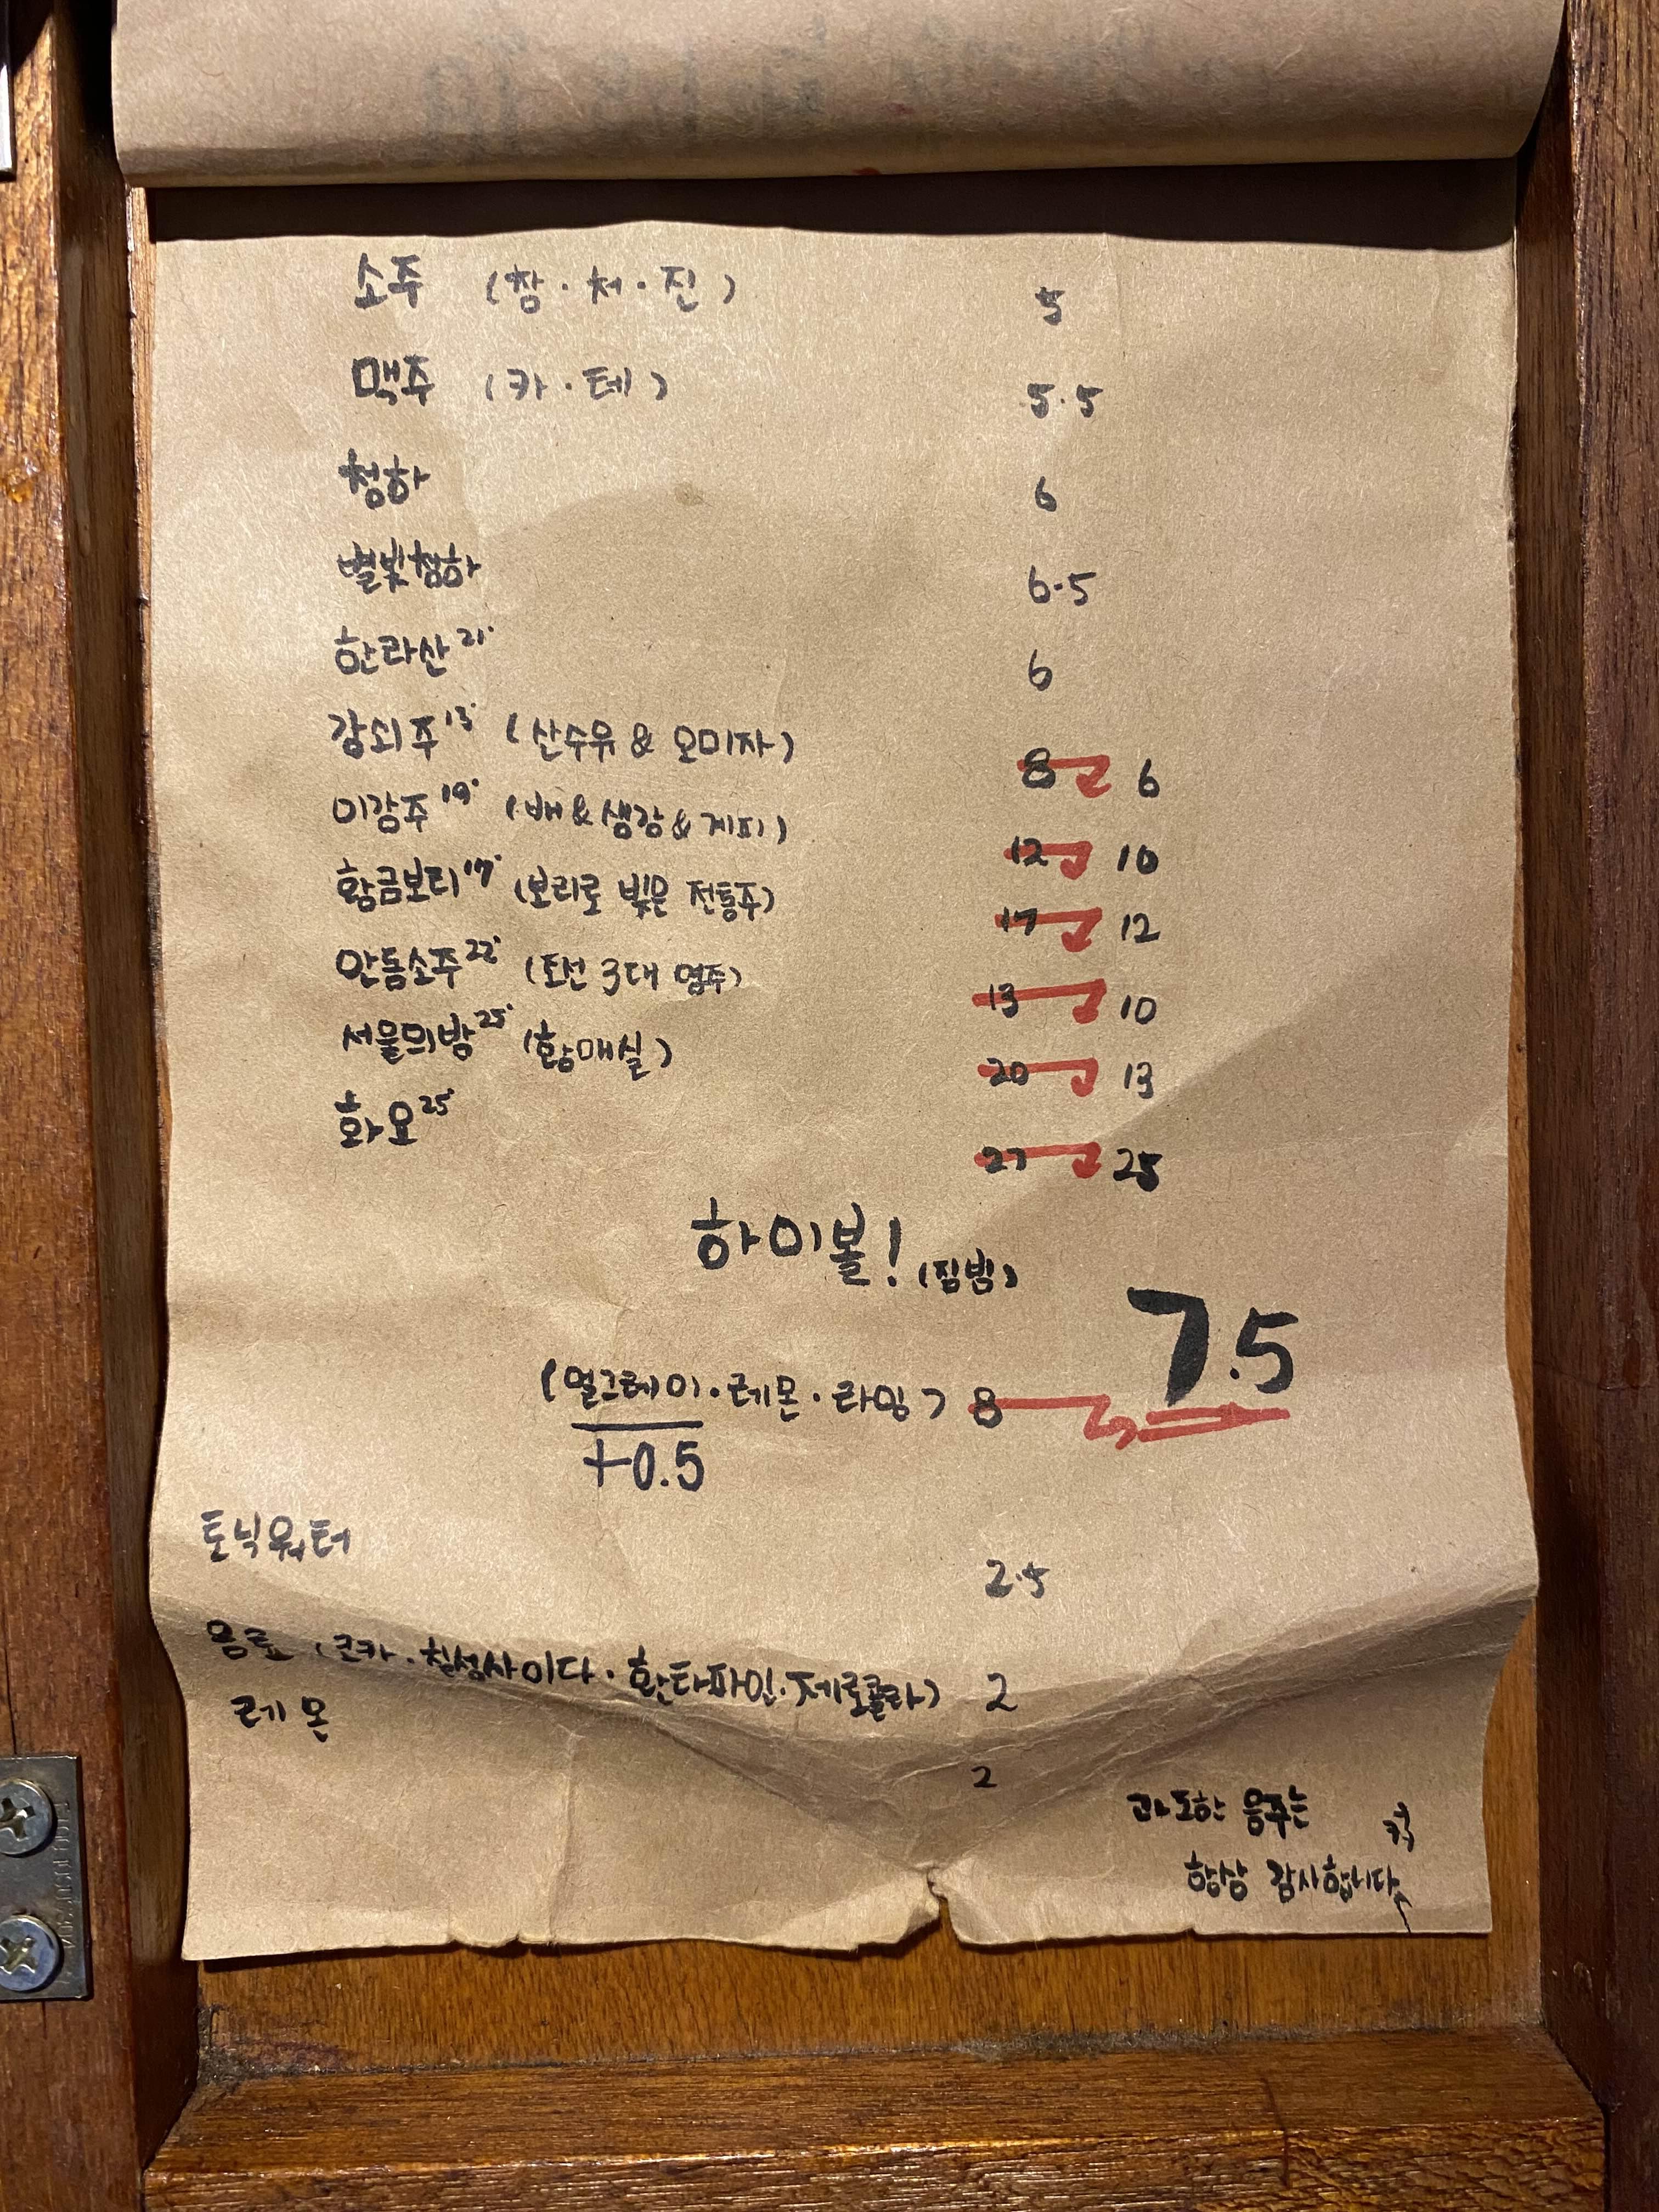 소주 (참·처·진) 5
맥주 (카·테) 5.5
청하 6
별빛청하 6.5
한라산 21° 6
강쇠주 13° (산수유 & 오미자) 8 6
이강주 19° (배 & 생강 & 계피) 12 10
황금보리 17° (보리로 빚은 전통주) 17 12
안동소주 22° (조선 3대 명주) 13 10
서울의밤 25° (황매실) 20 13
화요 25° 27 25
하이볼! (짐빔)
7.5
(얼그레이·레몬·라임) 8
+0.5
토닉워터 2.5
음료 (코카·칠성사이다·환타파인·제로콜라) 2
레몬 2
과도한 음주는
항상 감사합니다